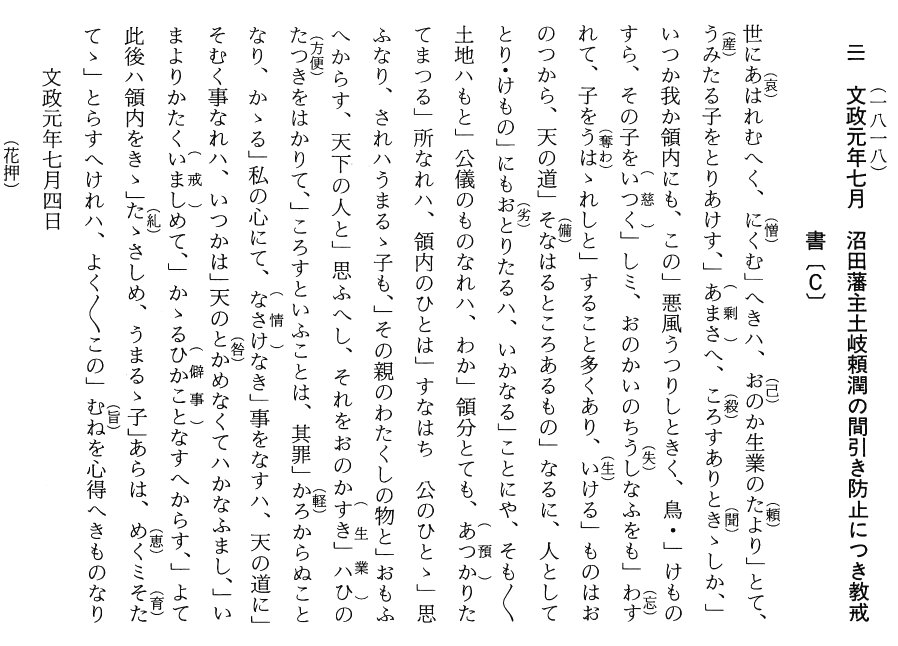 (一八一八)
三　文政元年七月　沼田藩主土岐頼潤の間引き防止につき教戒
書〔C〕
世にあはれ(哀)むへく、にく(憎)む」へきハ、おのか(己)生業のたより(頼)」とて、
うみ(産)たる子をとりあけす、」あまさへ(剰)、ころす(殺)ありときゝ(聞)しか、」
いつか我か領内にも、この」悪風うつりしときく、鳥・」けもの
すら、その子をいつくし(慈)」しミ、おのかいのちうしなふ(失)をも」わす(忘)
れて、子をうはゝれ(奪わ)しと」すること多くあり、いける(生)」ものはお
のつから、天の道」そなはる(備)ところあるもの」なるに、人として
とり・けもの」にもおとり(劣)たるハ、いかなる」ことにや、そも〱
土地ハもと」公儀のものなれハ、わか」領分とても、あつかり(預)た
てまつる」所なれハ、領内のひとは」すなはち　公のひとゝ」思
ふなり、されハうまるゝ子も、」その親のわたくしの物と」おもふ
へからす、天下の人と」思ふへし、それをおのかすき(生業)」ハひの
たつき(方便)をはかりて、」ころすといふことは、其罪」かろから(軽)ぬこと
なり、かゝる」私の心にて、なさけ(情)なき」事をなすハ、天の道に」
そむく事なれハ、いつかは」天のとかめ(咎)なくてハかなふまし、」い
まよりかたくいましめ(戒)て、」かゝるひかこと(僻事)なすへからす、」よて
此後ハ領内をきゝ」たゝさ(糺)しめ、うまるゝ子」あらは、めくミ(恵)そた(育)
てゝ」とらすへけれハ、よく〱この」むね(旨)を心得へきものなり
文政元年七月四日
(花押)